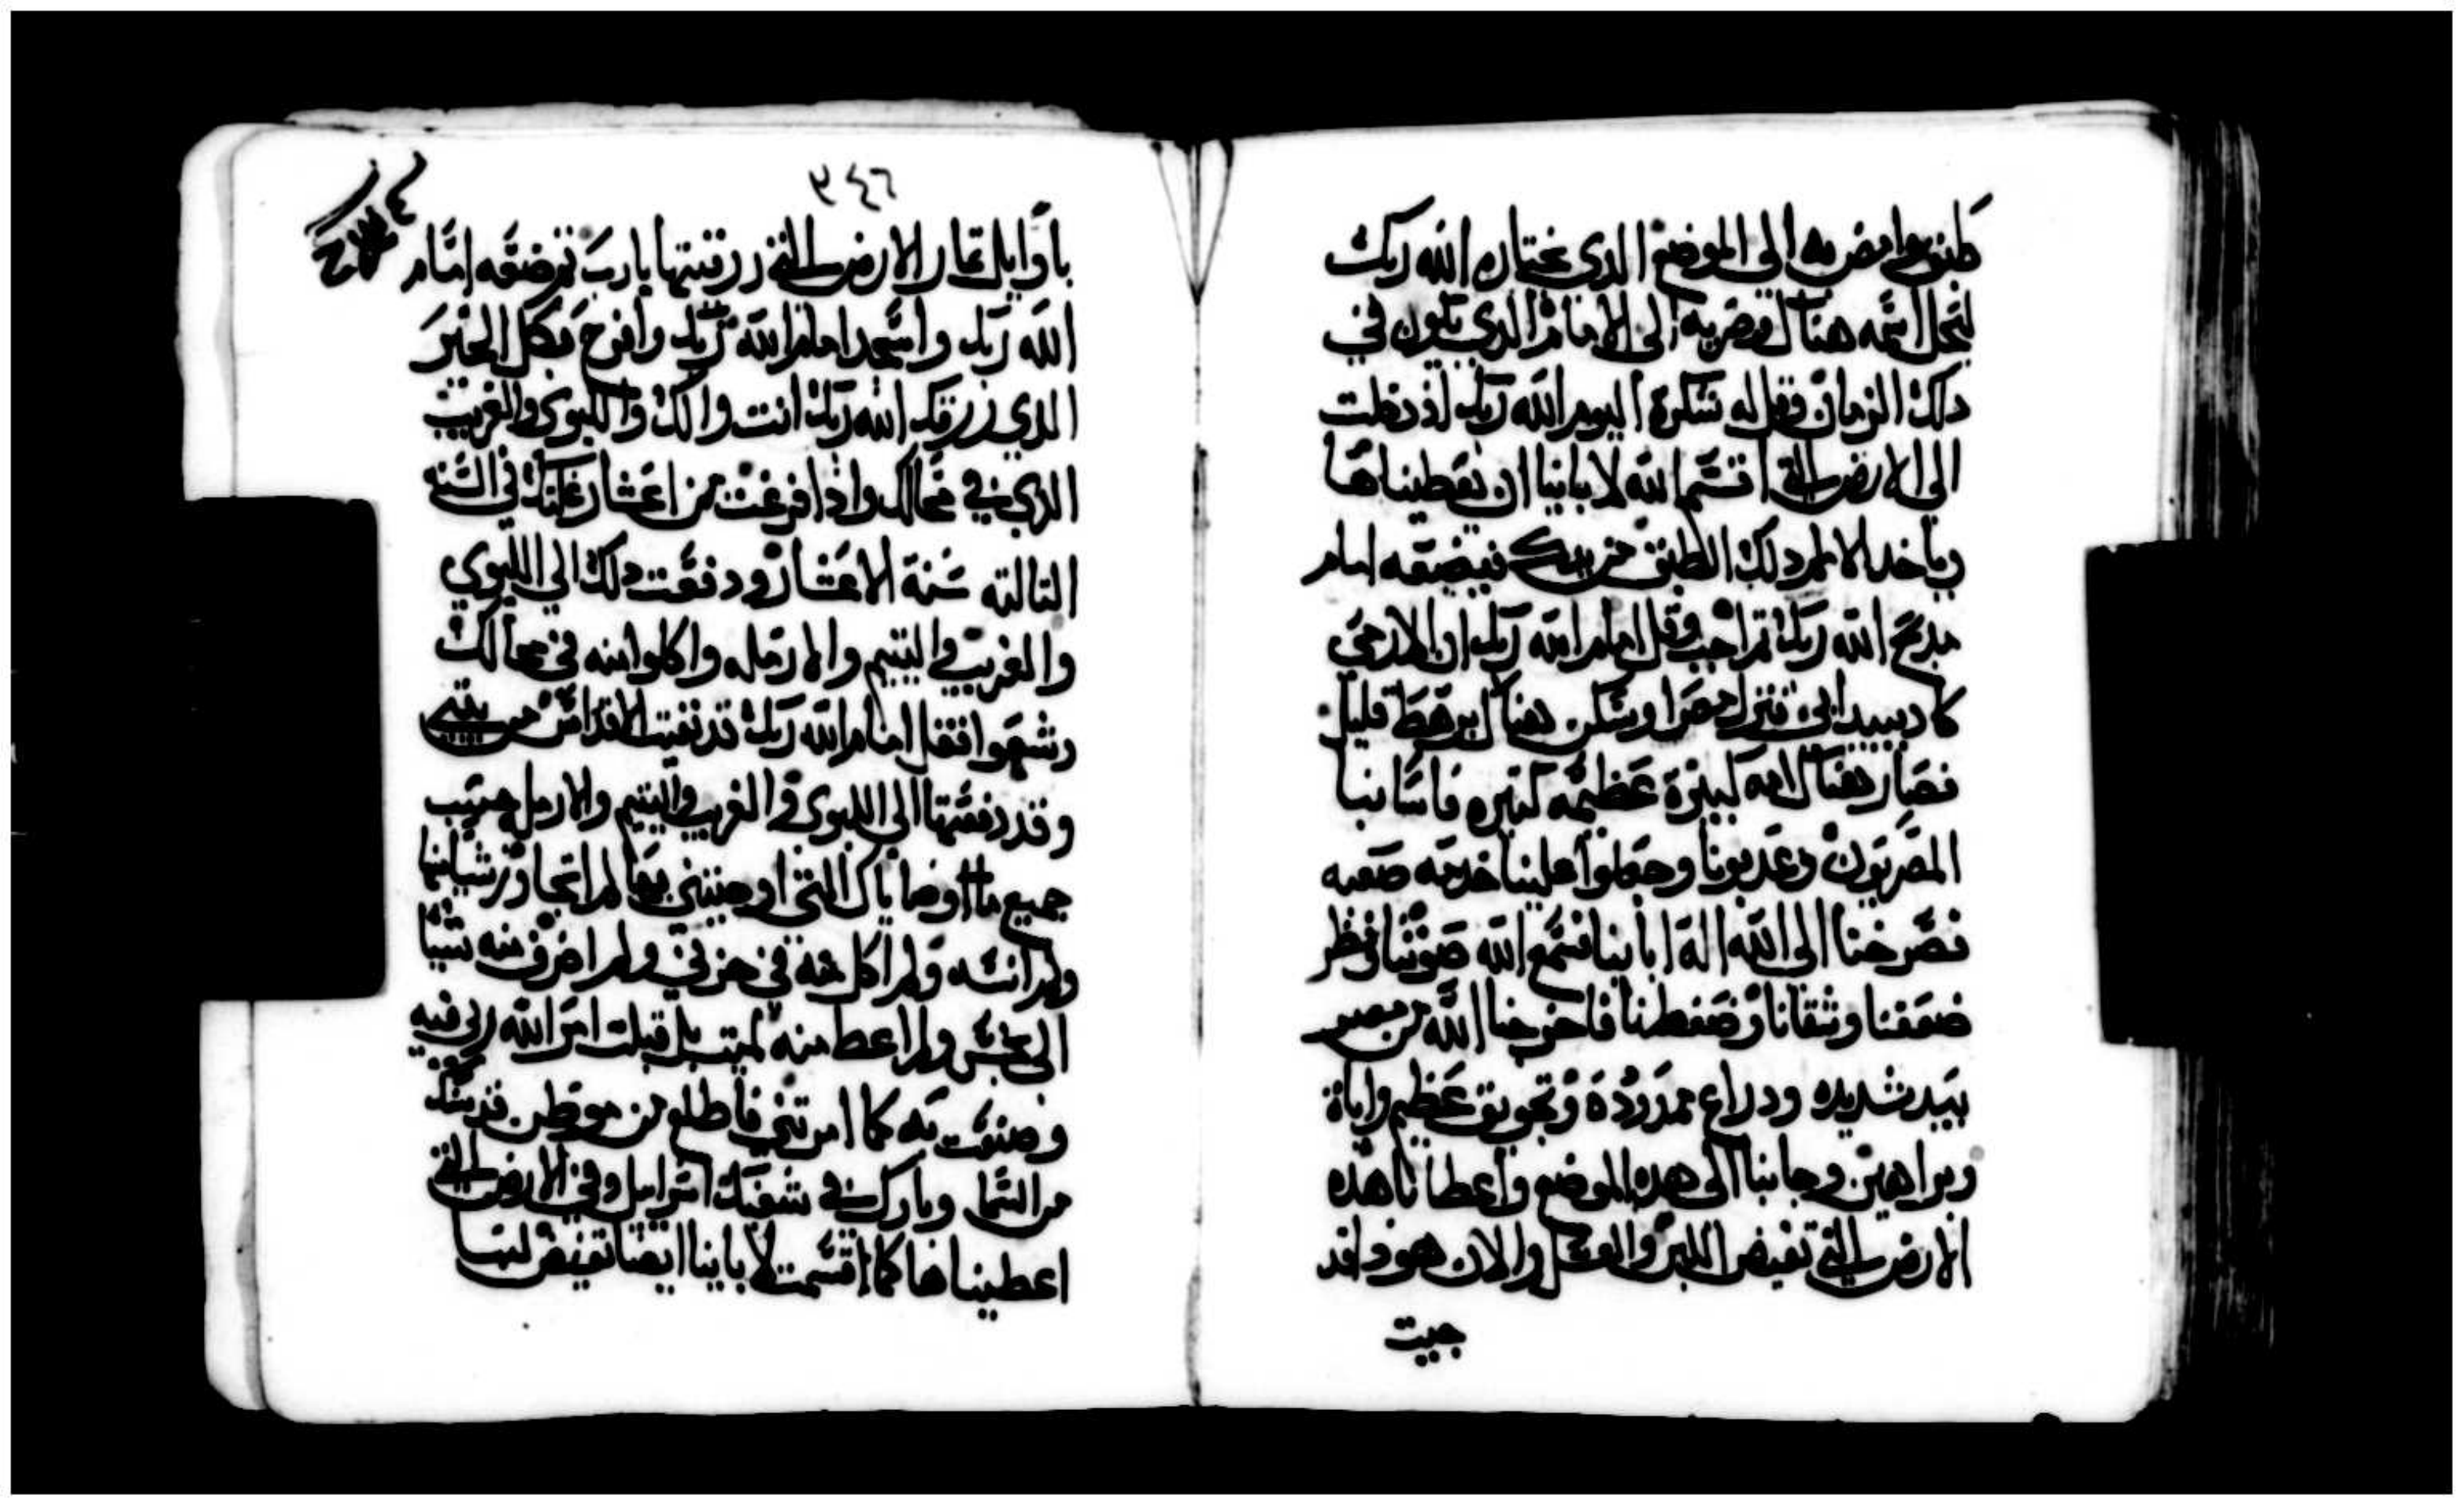 طبق وامضي به الي الموضع الدي يختاره الله ربك
ليحل اسمه هناك ومر به الي الامام الدي يكون في
دلك الزمان وقل له شكرة اليوم الله ربك اذ دخلت
الي الارض التي اقسم الله لابانيا ان يعطيناها
وياخد الامام دلك الطبق من يدك فيضعه امام
مدبح الله ربك تم اجب وقل امام الله ربك ان الارمي
كاد يبيد ابي فنزل مصرا وسكن هناك برهط قليل
فصار هناك امه كبيرة عظيمه كتيره فاسا بنا
المصريون وعدبونا وجعلوا علينا خدمه صعبه
فصرخنا الي الله اله ابانيا فسمع الله صوتنا ونظر
ضعفنا وشقانا وضغطنا فاخرجنا الله من مصر
بيد شديده ودراع ممدوده وتخويق عظيم واياة
وبراهين وجابنا الي هده الموضع واعطانا هده
الارض التي تفيض اللبن والعسل والان هودا قد
جيت
٣٤٦
باوايل تمار الارض التي رزقتيها يارب تم ضعه امام
الله ربك واسجد امام الله ربك وافرح بكل الخير
الدي رزقك الله ربك انت والك والليوي والغريب
الدي في محالك وادا فرغت من اعشار غلتك في السنه
التالته سنة الاعشار ودفعت دلك الي الليوي
والغريب واليتيم والارمله واكلوا منه في محالك
وشبعوا فقل امام الله ربك قد نقيت الاقداس من بيتي
وقد دفعتها الي الليوي والغريب واليتيم والارمل حسب
جميع ما اوصاياك التي اوصيتني بها لم اتجاوز شيا منها
ولم انسه ولم اكل منه في حزني ولم اصرف منه شيا
الي نجس ولم اعط منه لميت بل قبلت امر الله ربي فيه
وصنعت به كما امرتني فاطلع من موطن قدسك
من السما وبارك في شعبك اسراييل وفي الارض التي
اعطيناها كما اقسمت لابانيا ايضا تفيض لبنا